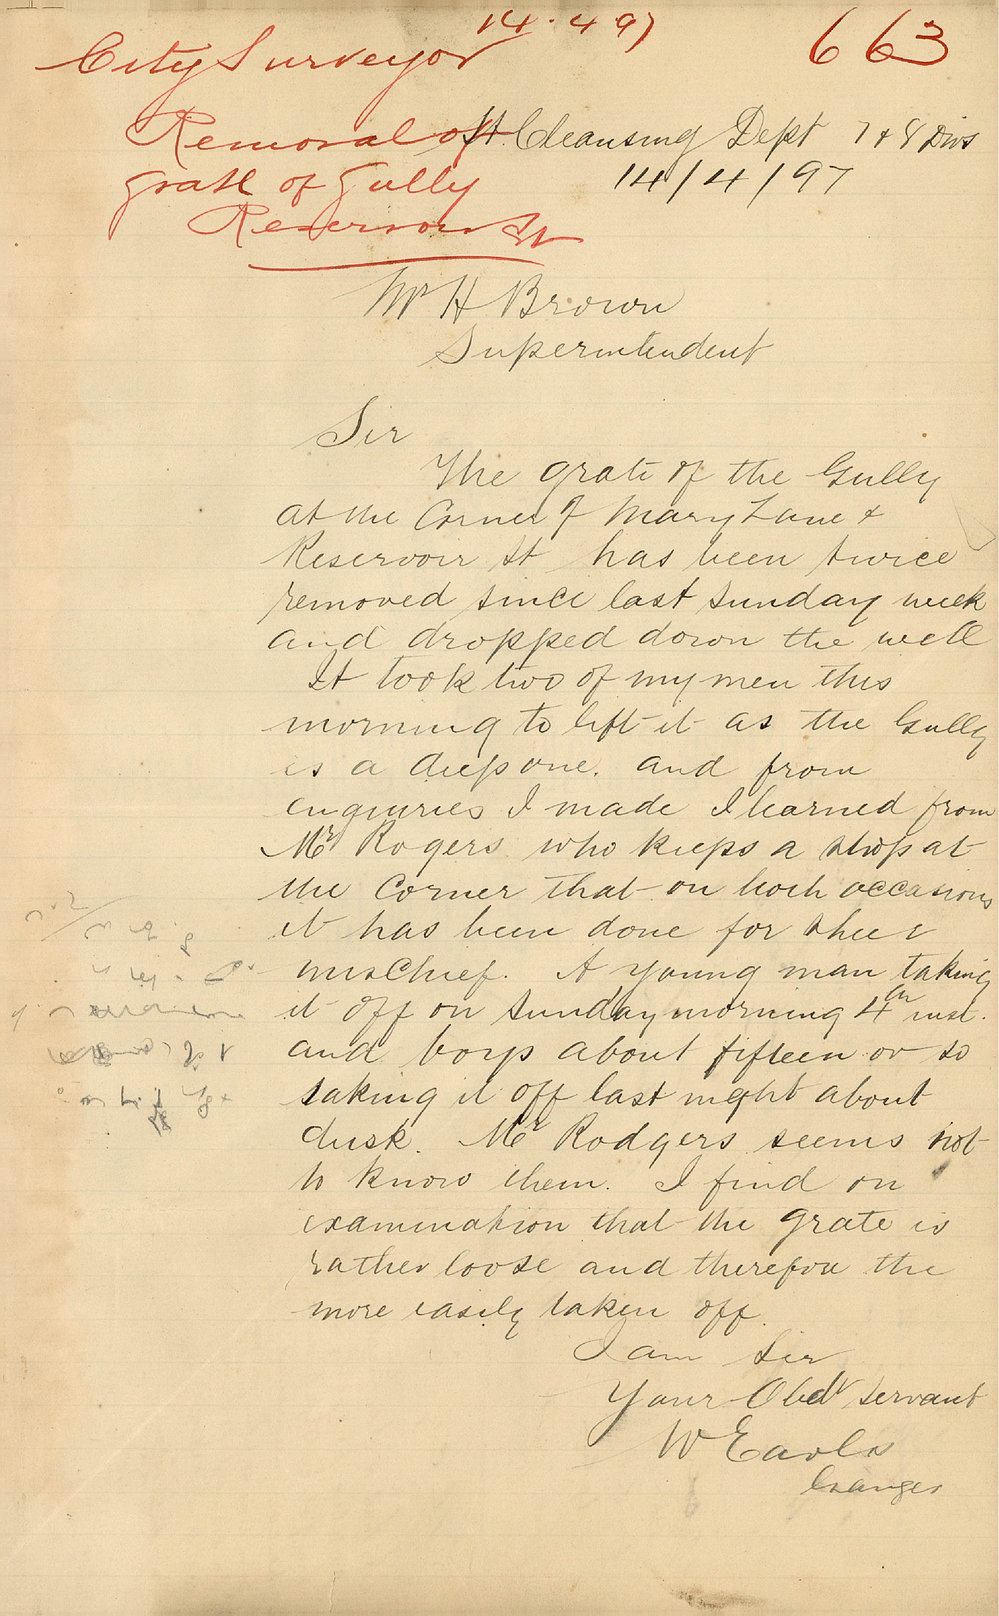 14.4.97
City Surveyor
663
Removal of
grate of Gully
Reservoir St
St. Cleansing Dept 7 & 8 Divs
14/4/97
Mr H Brown
Superintendent
Sir
The grate of the Gully
at the Corner of Mary Lane &
Reservoir St has been twice
removed since last Sunday week
and dropped down the well
It took two of my men this
morning to lift it as the Gully
is a deep one. and from
enquiries I made I learned from
Mr Rogers who keeps a shop at
the Corner that on both occasions
it has been done for sheer
misChief. A young man taking
it off on Sunday morning 4th inst.
and boys about fifteen or so
taking it off last night about
dusk. Mr Rodgers seems not
to know them. I find on
examination that the grate is
rather loose and therefore the
more easily taken off.
I am Sir
Your Obdt servant
W Earls
Ganger